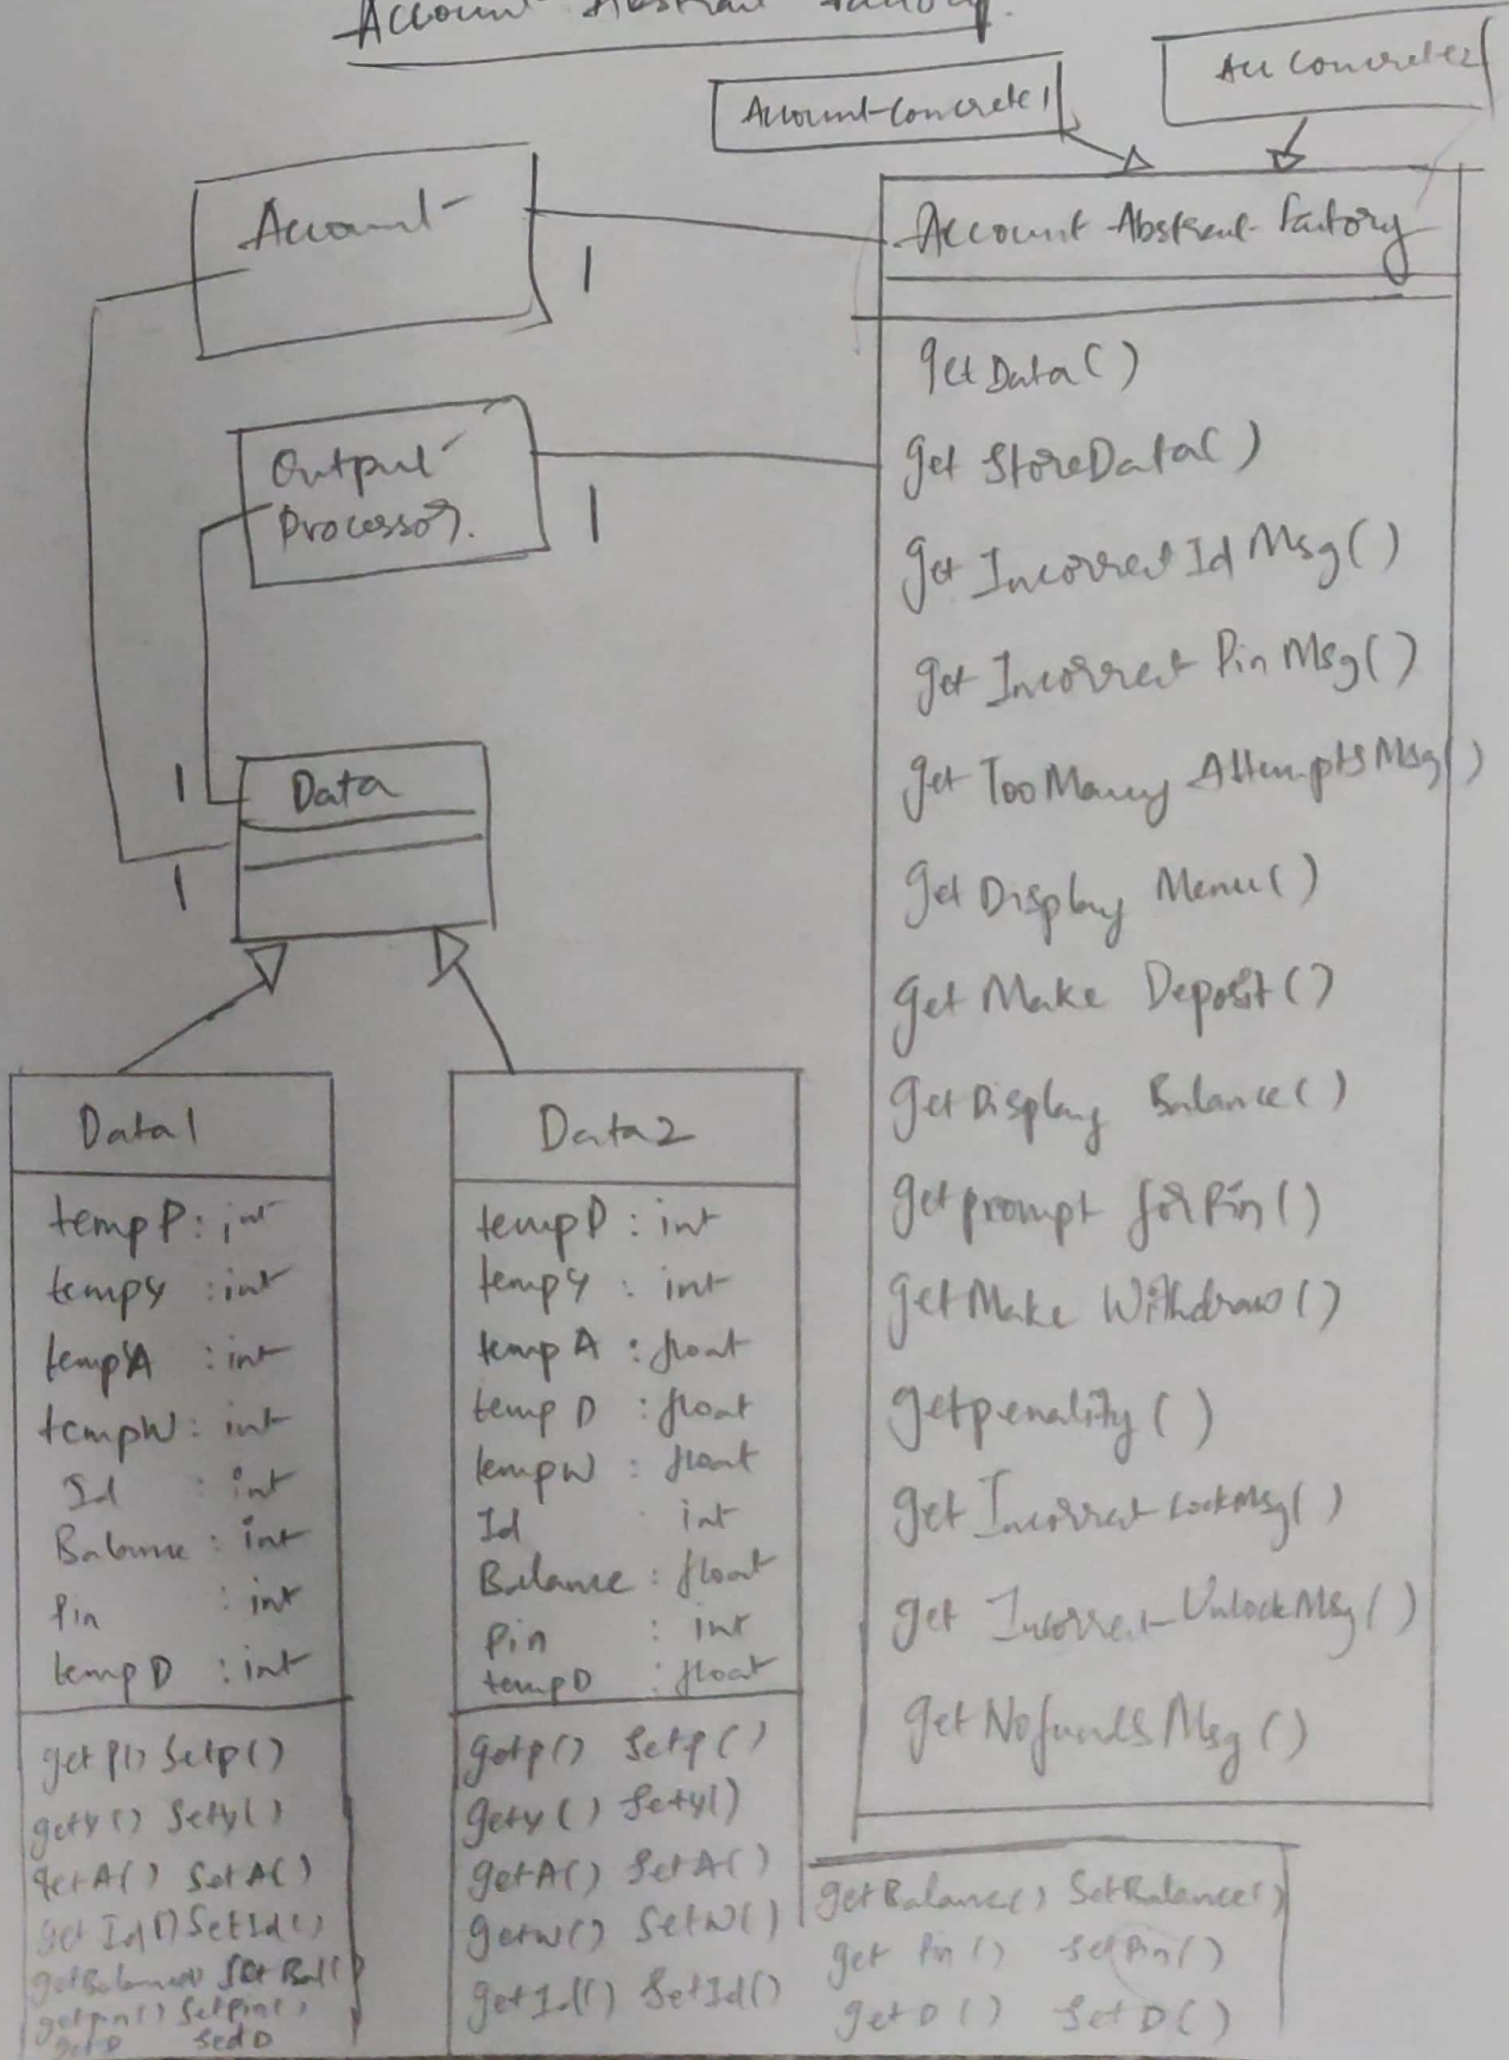 Account Abstract Factory.
Account Concrete1
Acc Concrete2
Account
1
Account Abstract Factory
getData()
get StoreData()
get Incorrect Id Msg()
get Incorrect Pin Msg()
get Too Many Attempts Msg()
get Display Menu()
get Make Deposit()
get Display Balance()
getprompt forPin()
getMake Withdraw()
getpenality()
get Incorrect LockMsg()
get Incorrect UnlockMsg()
getNofunds Msg()
Output
Processor.
1
1
Data
1
Data1
tempP : int
tempy : int
tempA : int
tempW : int
Id : int
Balance : int
Pin : int
tempD : int
getp() Setp()
gety() Sety()
getA() SetA()
get Id() SetId()
getBalance() Set Bal()
getpin() Setpin()
getD SetD
Data2
tempP : int
tempy : int
tempA : float
tempD : float
tempW : float
Id : int
Balance : float
Pin : int
tempD : float
getp() Setp()
gety() Sety()
getA() SetA()
getw() SetW()
getId() SetId()
getBalance() SetBalance()
get Pin() SetPin()
getD() SetD()